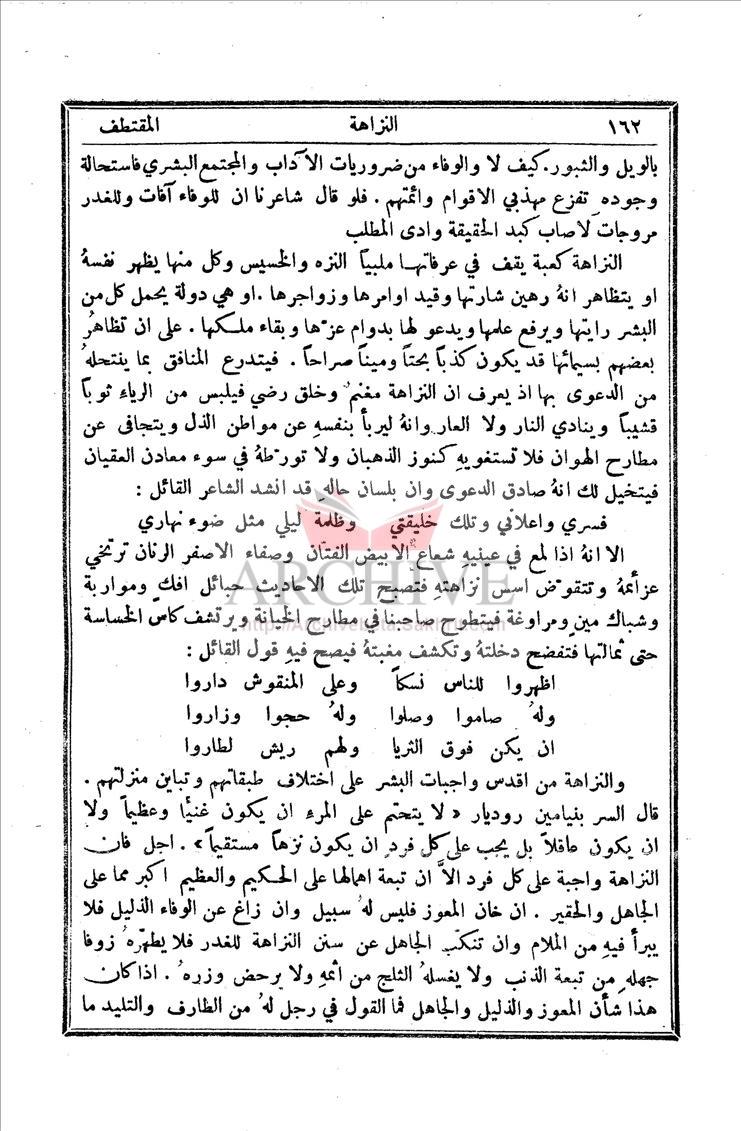 ١٦٢ النزاهة المقتطف
بالويل والثبور. كيف لا والوفاء من ضروريات الآداب والمجتمع البشري فاستحالة
وجوده تفزع مهذبي الاقوام وائمتهم . فلو قال شاعرنا ان للوفاء آفات وللغدر
مروجات لاصاب كبد الحقيقة وادى المطلب
النزاهة كعبة يقف في عرفاتها ملبياً النزه والخسيس وكل منها يظهر نفسهُ
او يتظاهر انهُ رهين شارتها وقيد اوامرها وزواجرها . او هي دولة يحمل كل من
البشر رايتها ويرفع علمها ويدعو لها بدوام عزّها وبقاء ملكها . على ان تظاهرُ
بعضهم بسيمائها قد يكون كذباً بحتاً وميناً صراحاً . فيتدرع المنافق بما ينتحلهُ
من الدعوى بها اذ يعرف ان النزاهة مغنم وخلق رضي فيلبس من الرياءِ ثوباً
قشيباً وينادي النار ولا العار وانهُ ليربأ بنفسهِ عن مواطن الذل ويتجافى عن
مطارح الهوان فلا تستغويهِ كنوز الذهبان ولا تورّطهُ في سوء معادن العقيان
فيتخيل لك انهُ صادق الدعوى وان بلسان حالهِ قد انشد الشاعر القائل :
فسري واعلاني وتلك خليقتي وظلمة ليلي مثل ضوء نهاري
الا انهُ اذا لمع في عينيهِ شعاع الابيض الفتّان وصفاء الاصفر الرنان ترتخي
عزائمهُ وتتقوّض اسس نزاهتهِ فتصبح تلك الاحاديث حبائل افك ومواربة
وشباك مينٍ ومراوغة فيتطوح صاحبنا في مطارح الخيانة ويرتشف كاس الخساسة
حتى ثمالتها فتفضح دخلتهُ وتكشف مغبتهُ فيصح فيهِ قول القائل :
اظهروا للناس نسكاً وعلى المنقوش داروا
ولهُ صاموا وصلوا ولهُ حجوا وزاروا
ان يكن فوق الثريا ولهم ريش لطاروا
والنزاهة من اقدس واجبات البشر على اختلاف طبقاتهم وتباين منزلتهم .
قال السر بنيامين روديار « لا يتحتّم على المرءِ ان يكون غنيًّا وعظيماً ولا
ان يكون عاقلاً بل يجب على كل فردٍ ان يكون نزهاً مستقيماً » . اجل فان
النزاهة واجبة على كل فرد الاّ ان تبعة اهمالها على الحكيم والعظيم اكبر مما على
الجاهل والحقير . ان خان المعوز فليس لهُ سبيل وان زاغ عن الوفاء الذليل فلا
يبرأ فيهِ من الملام وان تنكّب الجاهل عن سنن النزاهة للغدر فلا يطهّرهُ زوفا
جهلهِ من تبعة الذنب ولا يغسلهُ الثلج من اثمهِ ولا يرحض وزرهُ . اذا كان
هذا شأن المعوز والذليل والجاهل فما القول في رجل لهُ من الطارف والتليد ما
ARCHIVE